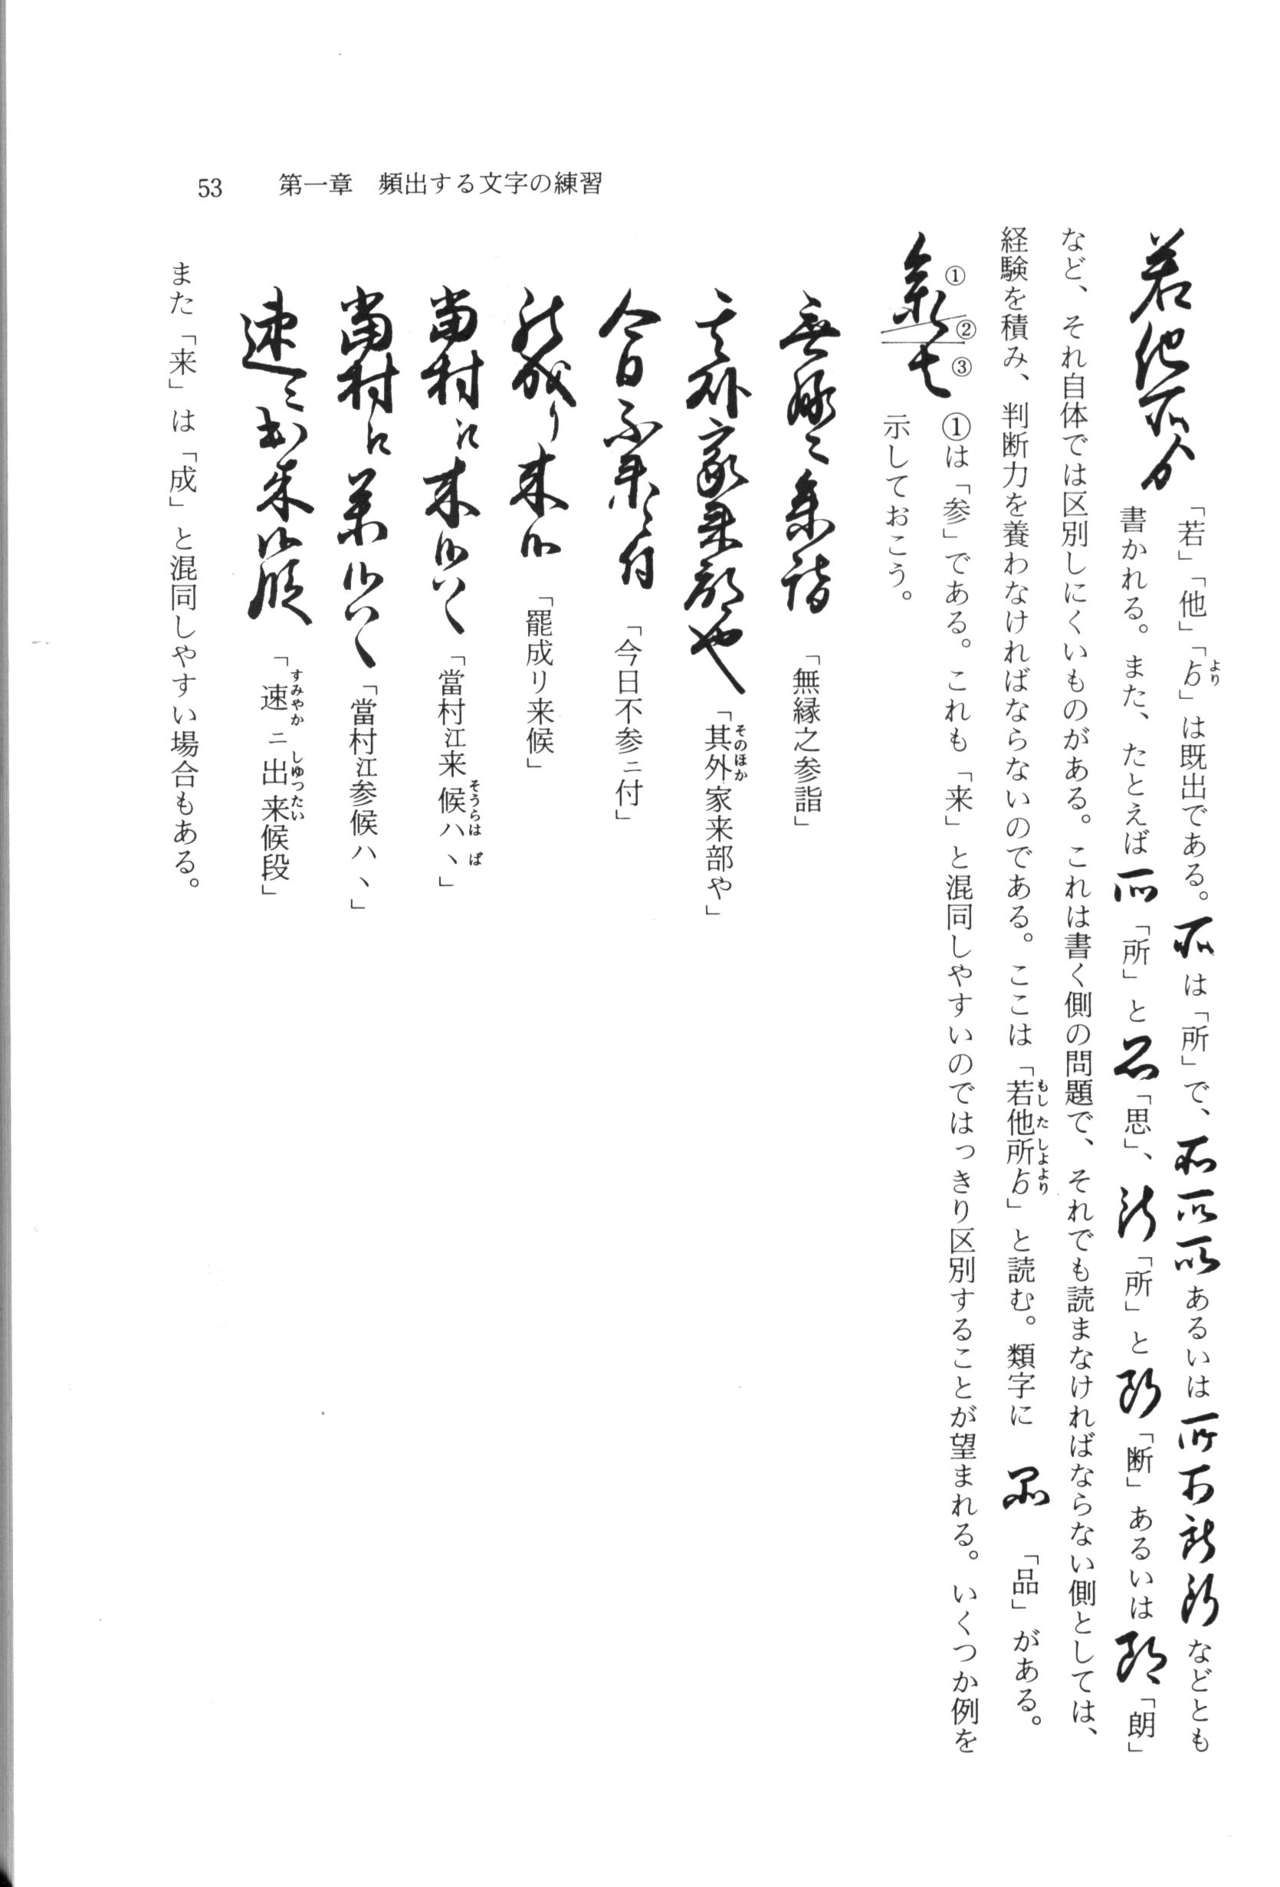 53　第一章　頻出する文字の練習
若他所ゟ
「若」「他」「ゟ」は既出である。所は「所」で、所所所あるいは所所所所などとも
書かれる。また、たとえば所「所」と思「思」、所「所」と断「断」あるいは朗「朗」
など、それ自体では区別しにくいものがある。これは書く側の問題で、それでも読まなければならない側としては、
経験を積み、判断力を養わなければならないのである。ここは「若他所ゟ」と読む。類字に　品　「品」がある。
①②③
①は「参」である。これも「来」と混同しやすいのではっきり区別することが望まれる。いくつか例を
示しておこう。
無縁之参詣「無縁之参詣」
其外家来部や「其外家来部や」
今日不参ニ付「今日不参ニ付」
罷成リ来候「罷成リ来候」
當村江来候ハヽ「當村江来候ハヽ」
當村江参候ハヽ「當村江参候ハヽ」
速ニ出来候段「速ニ出来候段」
また「来」は「成」と混同しやすい場合もある。